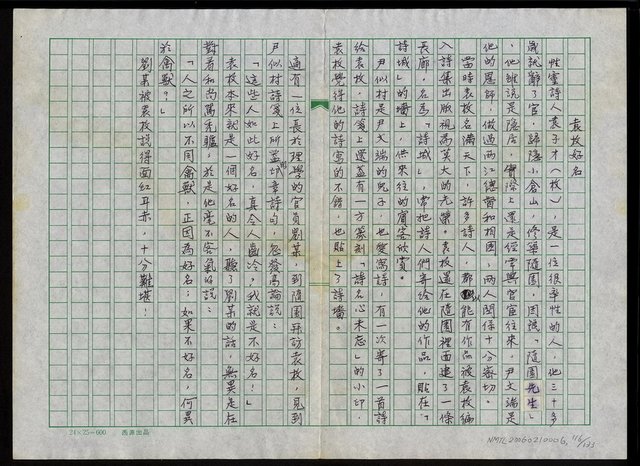 袁枚好名
性靈詩人袁子才（枚），是一位很率性的人，他三十多
歲就辭了官，歸隱小倉山，修築隨園，因號「隨園先生」
，他雖說是隱居，實際上還是經常與官宦往來，尹文端是
他的恩師，做過兩江總督和相國，兩人關係十分密切。
當時袁枚名滿天下，許多詩人，都以能有作品被袁枚編
入詩集出版視為莫大的光榮。袁枚還在隨園裡面建了一條
長廊，名為「詩城」，常把詩人們寄給他的作品，貼在「
詩城」的墻上，供來往的賓客欣賞。
尹似村是尹文端的兒子，也愛寫詩，有一次寄了一首詩
給袁枚，詩箋上還蓋有一方篆刻「詩名心未忘」的小印，
袁枚覺得他的詩寫的不錯，也貼上了詩墻。
適有一位長於理學的官員劉某，到隨園拜訪袁枚，見到
尹似村詩箋上所蓋的印章詩句，忽發高論說：
「這些人如此好名，真令人齒冷，我就是不好名！」
袁枚本來就是一個好名的人，聽了劉某的話，無異是在
對着和尚罵禿驢，於是他毫不客氣的說：
「人之所以不同禽獸，正因為好名，如果不好名，何異
於禽獸？」
劉某被袁枚說得面紅耳赤，十分難堪！
24×25=600
NMTL20060210006